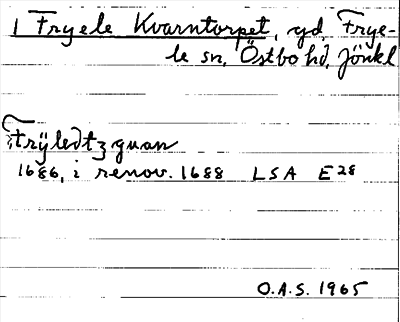 1 Fryele Kvarntorpet, gd, Frye-
le sn, Östbo hd, Jönkl
Frÿledtz quan
1686, i renov. 1688 LSA E28
O.A.S. 1965